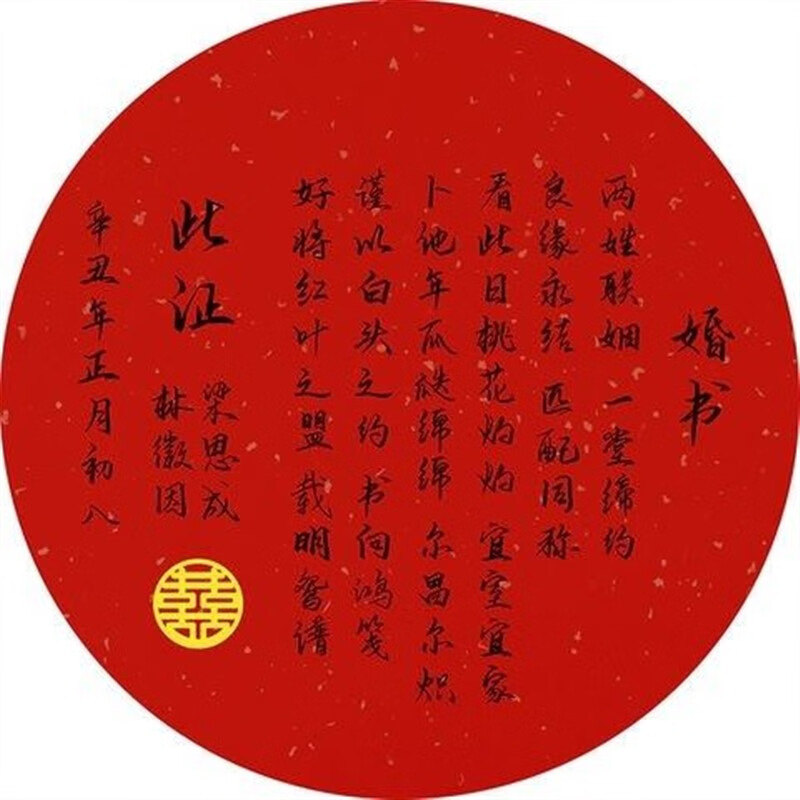 婚书
两姓联姻 一堂缔约
良缘永结 匹配同称
看此日桃花灼灼 宜室宜家
卜他年瓜瓞绵绵 尔昌尔炽
谨以白头之约 书向鸿笺
好将红叶之盟 载明鸳谱
此证
梁思成
林徽因
辛丑年正月初八
囍